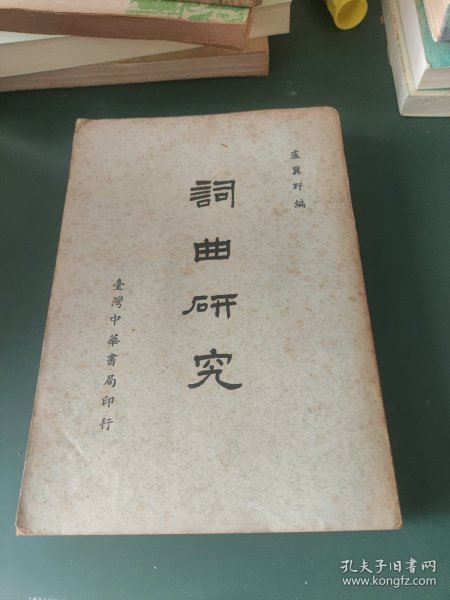 盧冀野編
詞曲研究
臺灣中華書局印行
孔夫子旧书网
www.kongfz.com